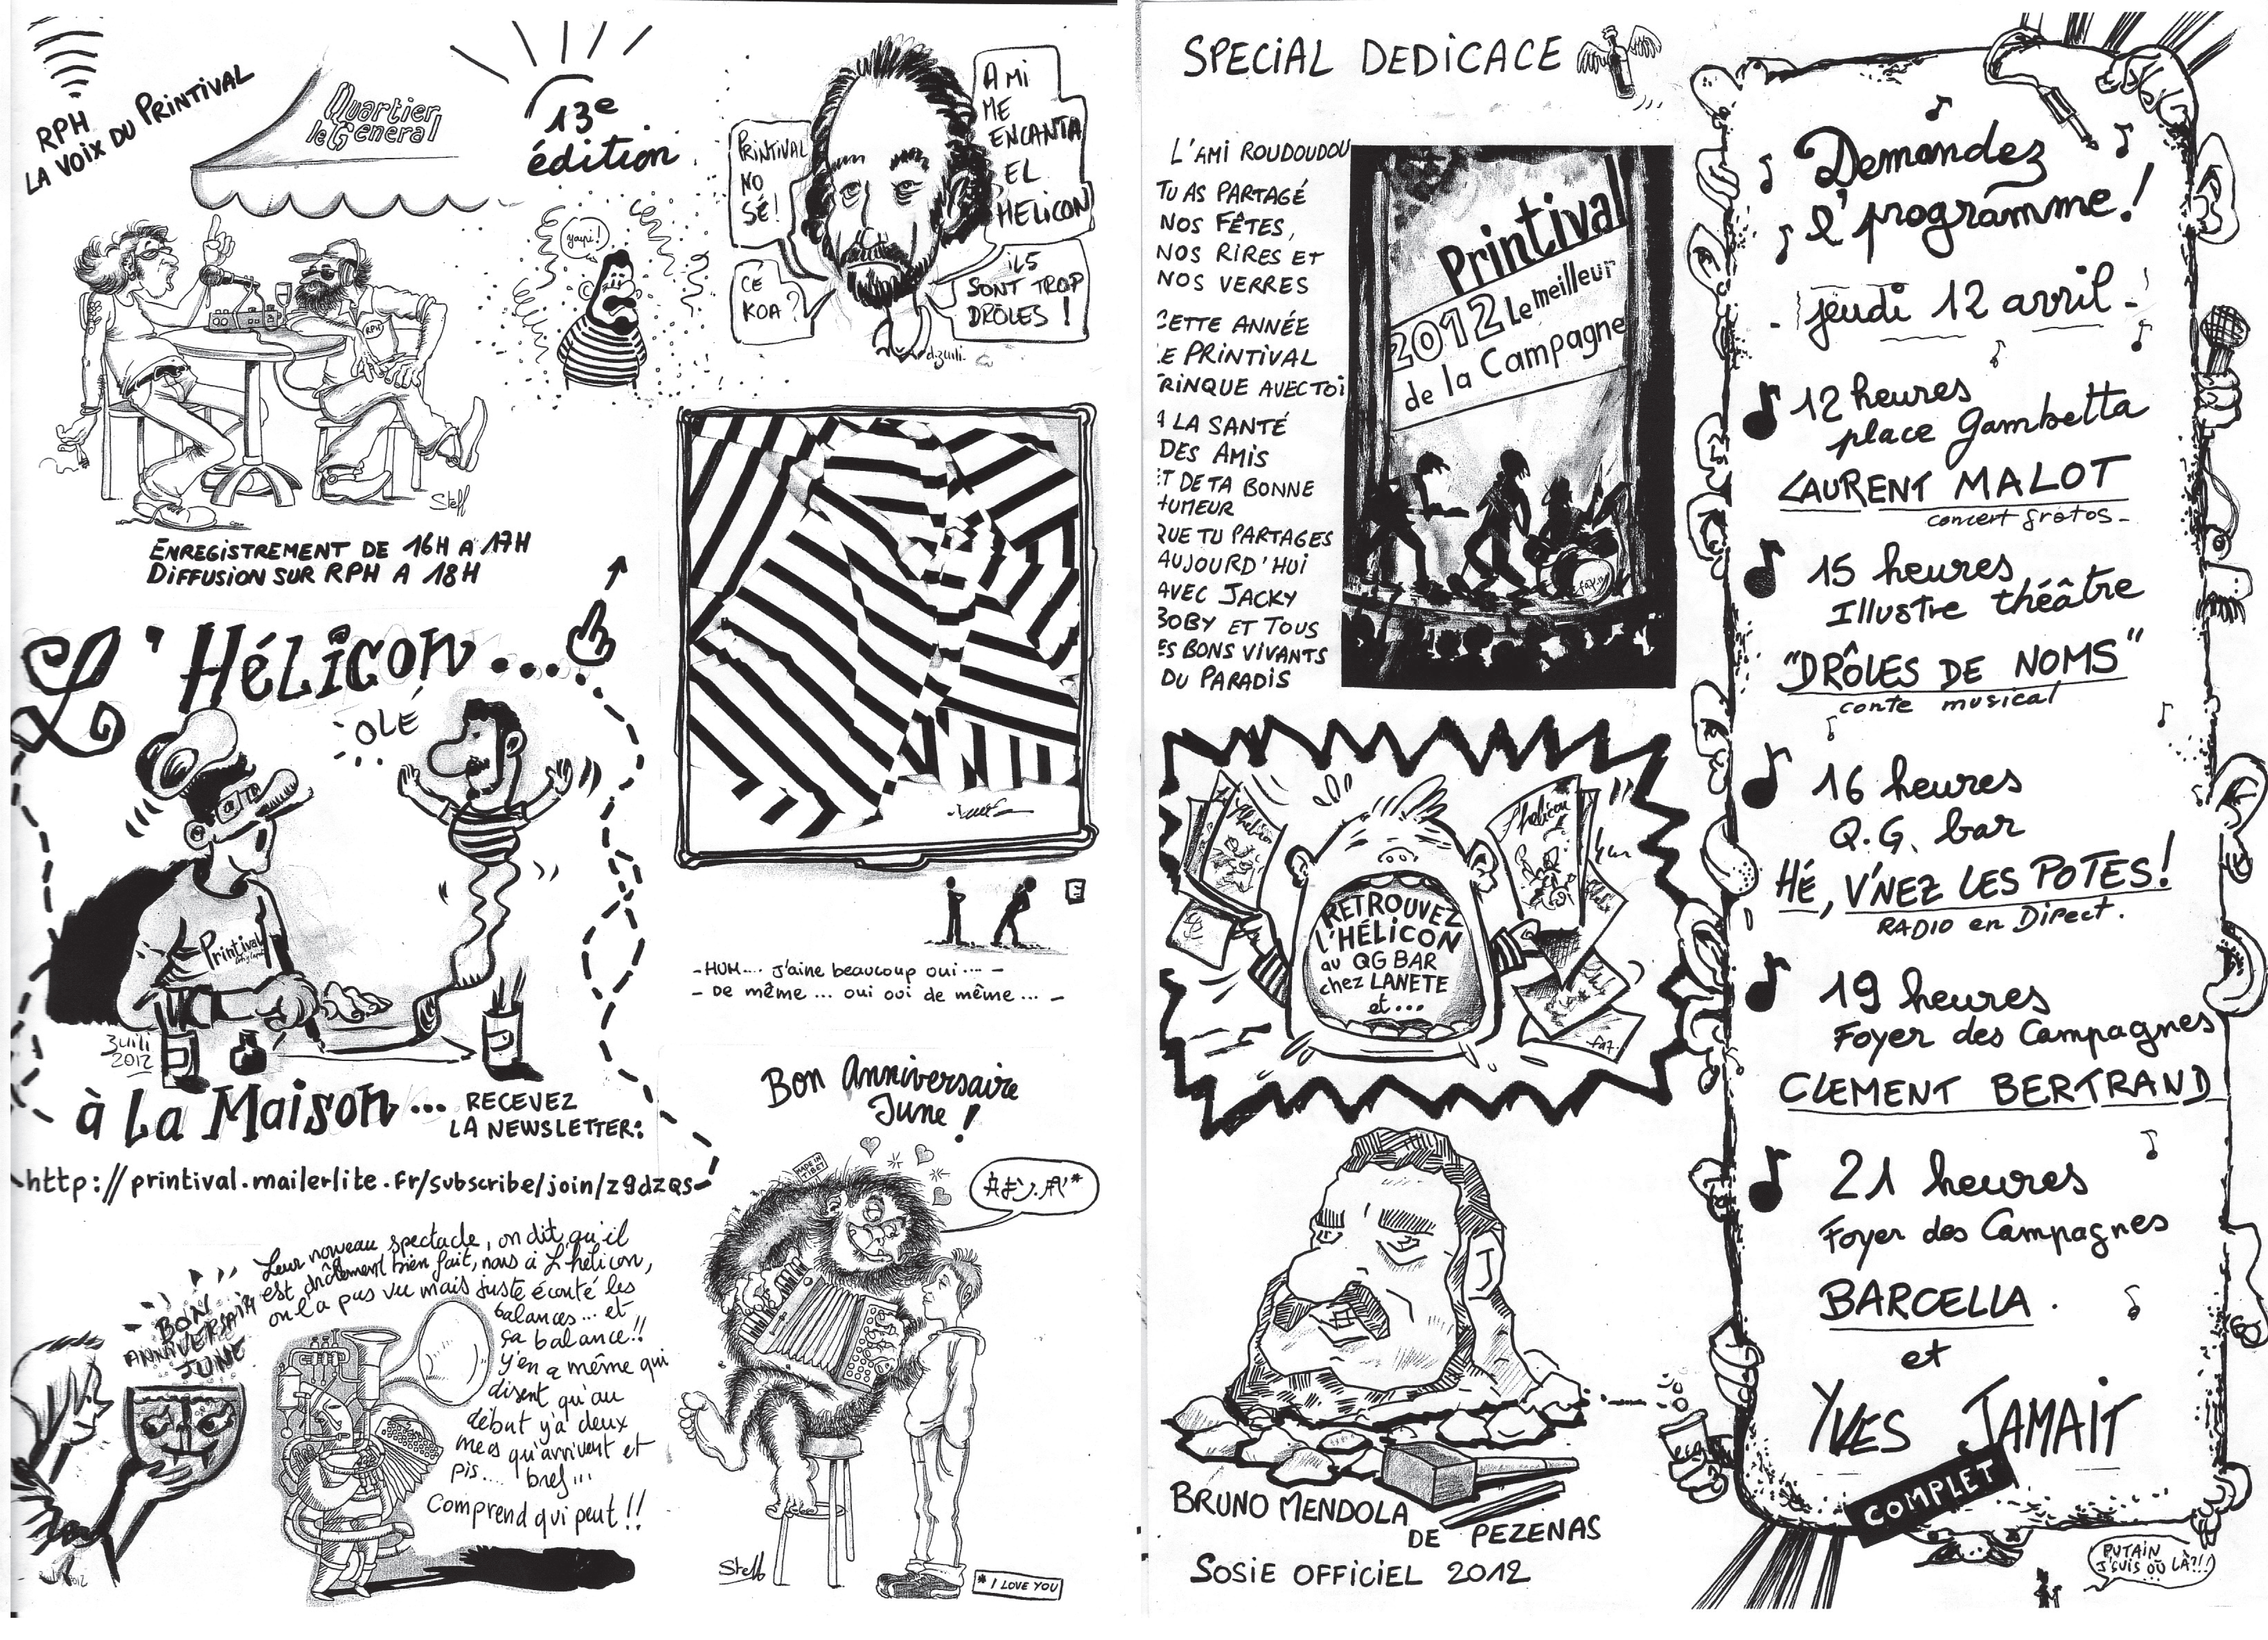 RPH
LA VOIX DU PRINTIVAL
Quartier
le General
13e
édition
yayi!
RPH
Steff
ENREGISTREMENT DE 16H A 17H
DIFFUSION SUR RPH A 18H
PRINTIVAL
NO
SÉ!
A MI
ME
ENCANTA
EL
HELICON
CÉ
KOA?
ILS
SONT TROP
DRÔLES !
d.zuili.
L'HÉLiCON...
OLÉ
Printival
Zuili
2012
à La Maison...
RECEVEZ
LA NEWSLETTER:
http://printival.mailerlite.fr/subscribe/join/z9dzqs
- HUM.... j'aine beaucoup oui .... -
- De même ... oui ooi de même ... -
Leur nouveau spectacle, on dit qu'il
est drôlement bien fait, nous à L'hélicon,
on l'a pas vu mais juste écouté les
balances... et
ça balance!!
Y'en a même qui
disent qu'au
début y'a deux
mecs qu'arrivent et
pis.... bref...
Comprend qui peut !!
BON
ANNIVERSAIRE
JUNE
Bon Anniversaire
June !
MADE IN
TIBET
Steff
* I LOVE YOU
SPECIAL DEDICACE
L'AMI ROUDOUDOU
TU AS PARTAGÉ
NOS FÊTES,
NOS RIRES ET
NOS VERRES
CETTE ANNÉE
LE PRINTIVAL
TRINQUE AVEC TOI
A LA SANTÉ
DES AMIS
ET DE TA BONNE
HUMEUR
QUE TU PARTAGES
AUJOURD'HUI
AVEC JACKY
BOBY ET TOUS
LES BONS VIVANTS
DU PARADIS
Printival
2012 Le meilleur
de la Campagne
faz
l'hélicon
l'hélicon
RETROUVEZ
L'HÉLICON
au QG BAR
chez LANETE
et...
faz
BRUNO MENDOLA
DE PEZENAS
SOSIE OFFICIEL 2012
Demandez
l'programme!
jeudi 12 avril
12 heures
place Gambetta
LAURENT MALOT
concert gratos
15 heures
Illustre théâtre
"DRÔLES DE NOMS"
conte musical
16 heures
Q.G. bar
HÉ, V'NEZ LES POTES!
RADIO en DIRECT.
19 heures
Foyer des Campagnes
CLEMENT BERTRAND
21 heures
Foyer des Campagnes
BARCELLA.
et
YVES JAMAIT
COMPLET
PUTAIN
J'SUIS OÙ LÀ?!!